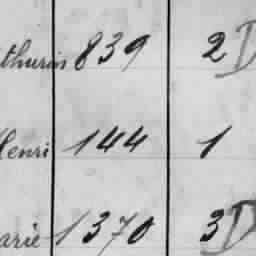 thurin 839 2 D
Henri 144 1
arie 1370 3 D